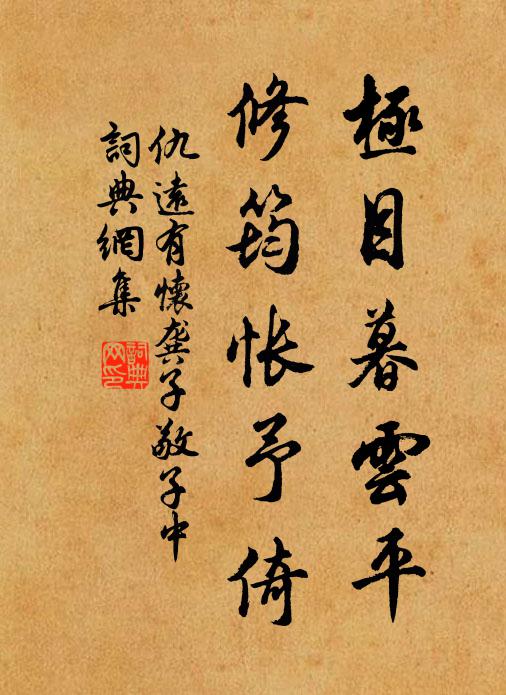 極目暮雲平
修筠悵予倚
仇遠有懷龔子敬子中
詞典網集
詞典網印